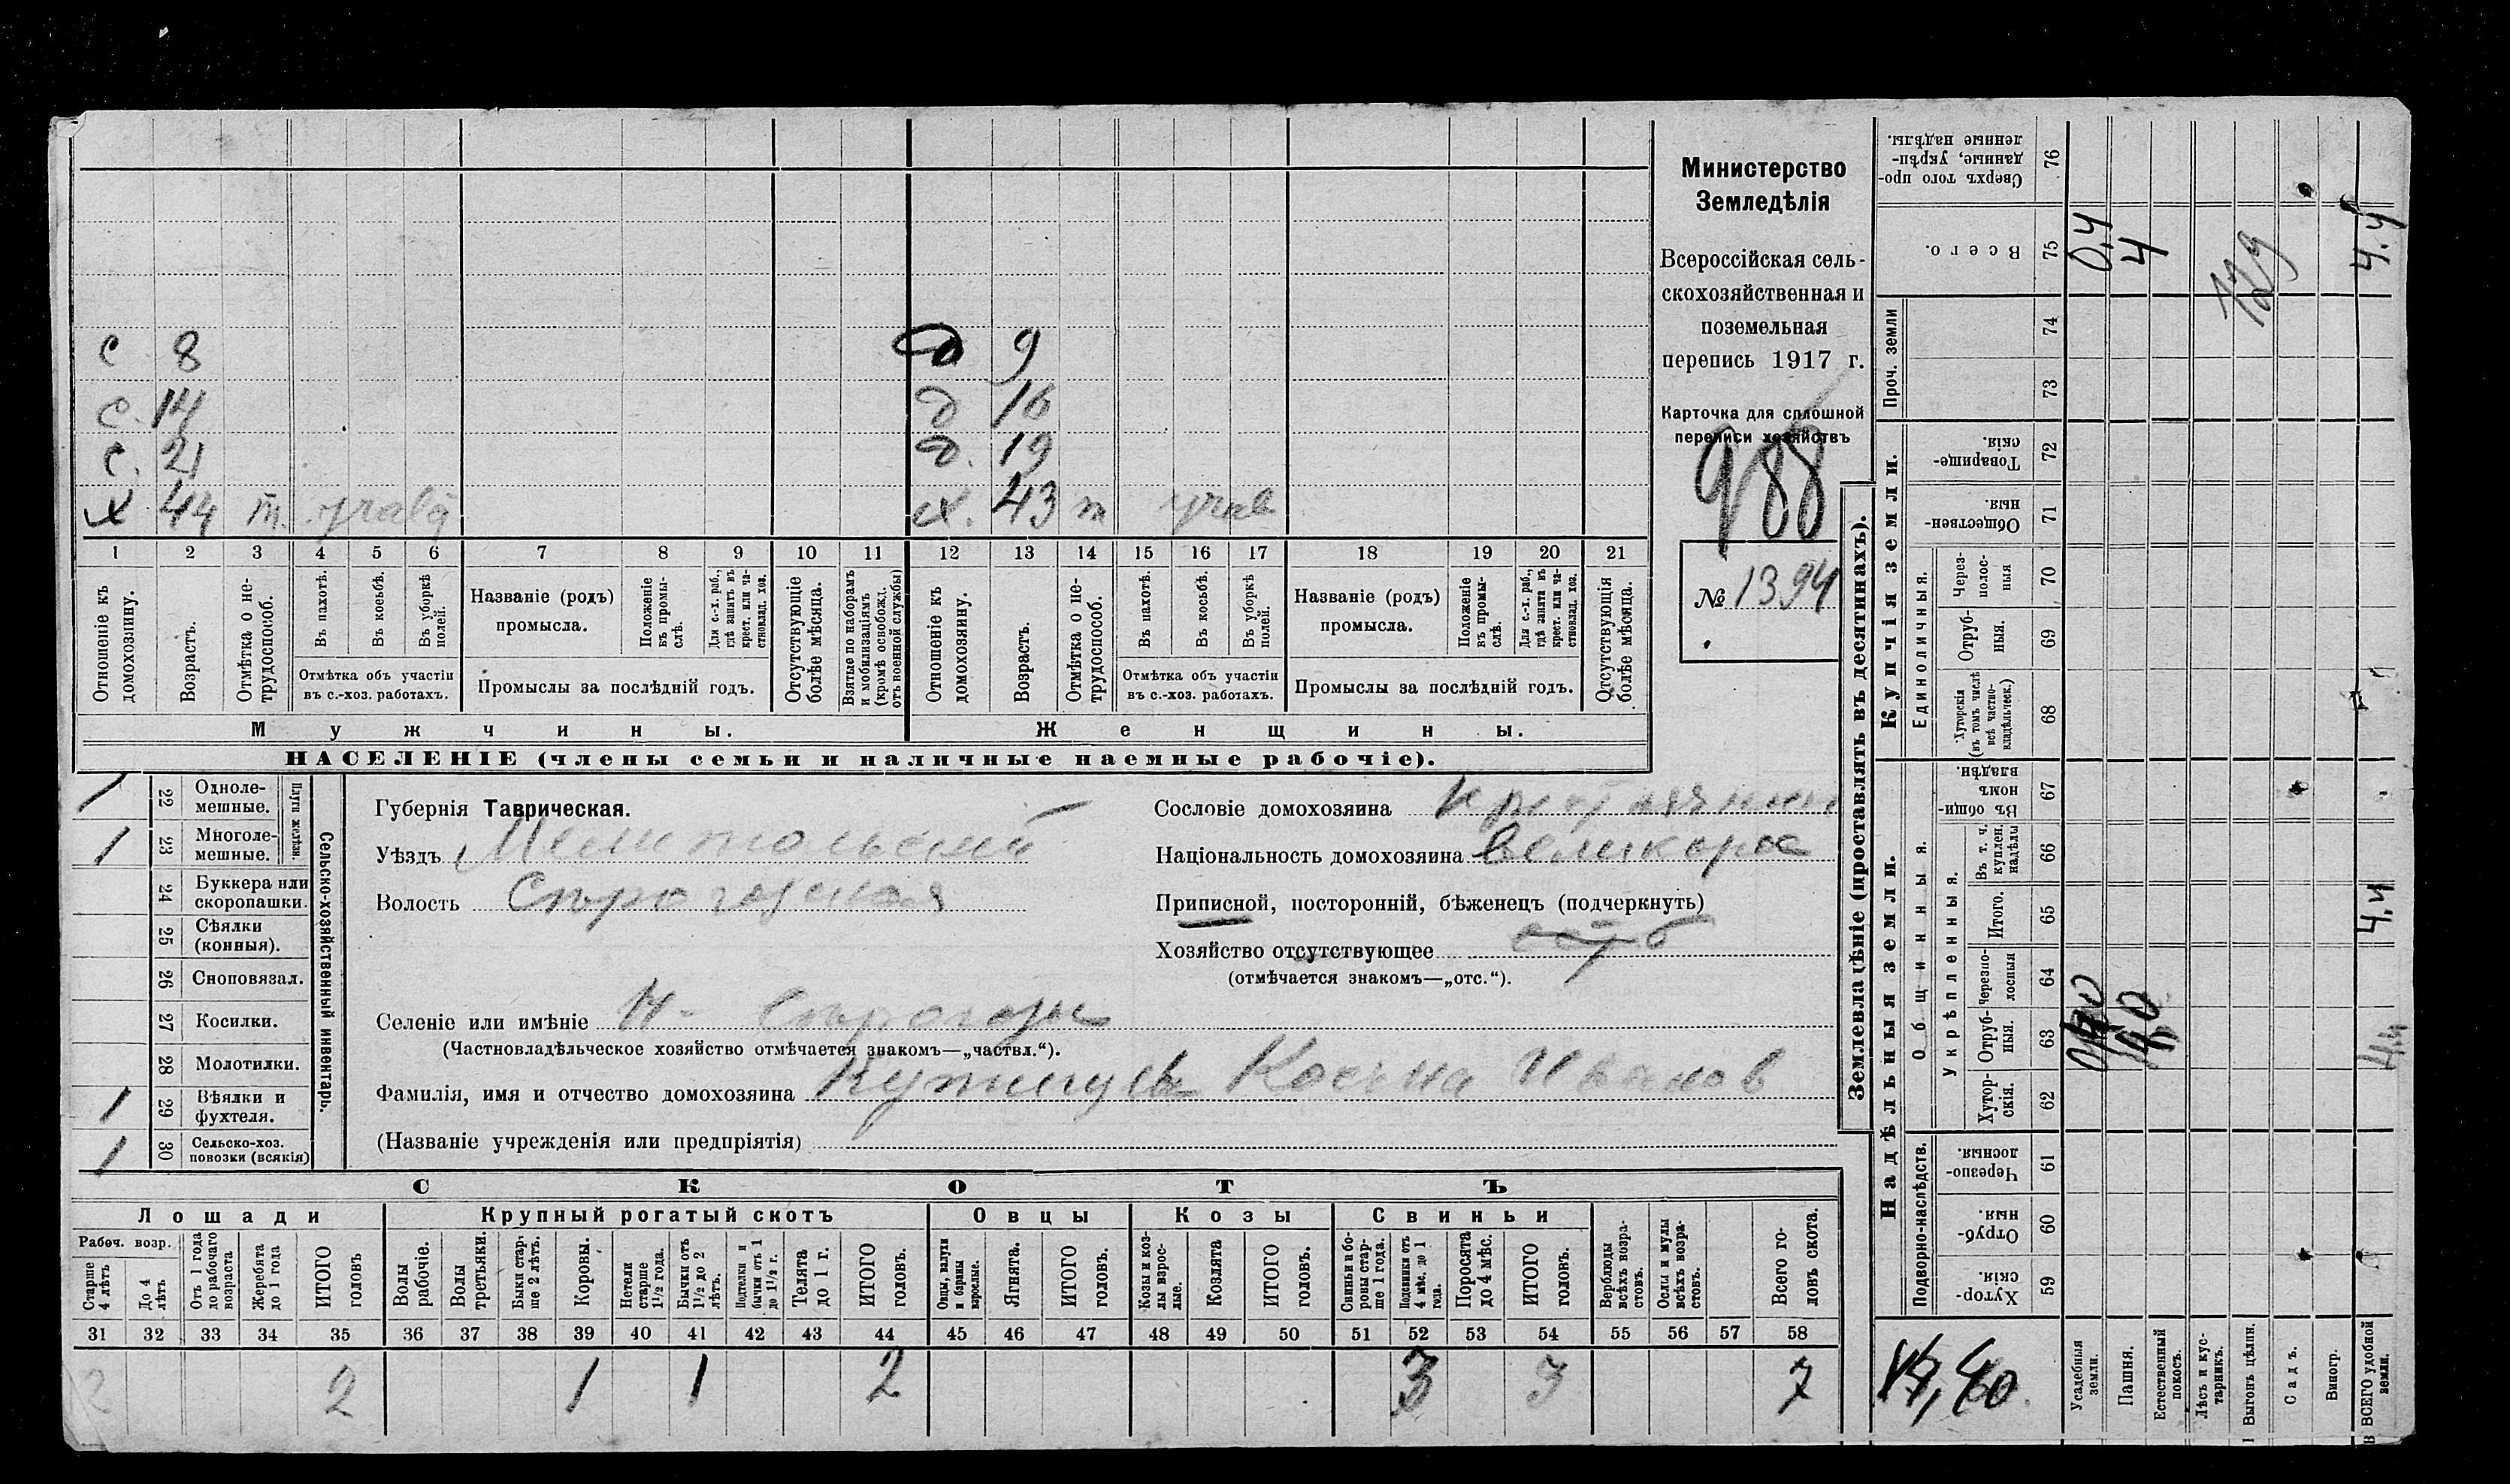 с 8 д 9
с. 14 д 16
с. 21 д. 19
х 44 х. 43
1 2 3 4 5 6 7 8 9 10 11 12 13 14 15 16 17 18 19 20 21
Отношеніе къ домохозяину.
Возрастъ.
Отмѣтка о не-трудоспособ.
Въ пахотѣ.
Въ косьбѣ.
Въ уборкѣ полей.
Отмѣтка объ участіи
въ с.-хоз. работахъ.
Названіе (родъ)
промысла.
Положеніе въ промы-слѣ.
Для с.-х. раб., гдѣ занятъ въ крест. или ча-стновлад. хоз.
Промыслы за послѣдній годъ.
Отсутствующіе болѣе мѣсяца.
Взятые по наборамъ и мобилизаціямъ (кромѣ освобожд. отъ военной службы)
Отношеніе къ домохозяину.
Возрастъ.
Отмѣтка о не-трудоспособ.
Въ пахотѣ.
Въ косьбѣ.
Въ уборкѣ полей.
Отмѣтка объ участіи
въ с.-хоз. работахъ.
Названіе (родъ)
промысла.
Положеніе въ промы-слѣ.
Для с.-х. раб., гдѣ занята въ крест. или ча-стновлад. хоз.
Промыслы за послѣдній годъ.
Отсутствующія болѣе мѣсяца.
Мужчины.
Женщины.
НАСЕЛЕНІЕ (члены семьи и наличные наемные рабочіе).
Министерство
Земледѣлія
Всероссійская сель-
скохозяйственная и
поземельная
перепись 1917 г.
Карточка для сплошной
переписи хозяйствъ
988
№ 1394
1 22 Одноле-мешные.
1 23 Многоле-мешные.
Плуги желѣзн.
24 Буккера или скоропашки.
25 Сѣялки (конныя).
26 Сноповязал.
27 Косилки.
28 Молотилки.
1 29 Вѣялки и фухтеля.
1 30 Сельско-хоз. повозки (всякія)
Сельско-хозяйственный инвентарь.
Губернія Таврическая.
Уѣздъ Мелитопольский
Волость Сърогозская
Селеніе или имѣніе Н- Сърогозы
(Частновладѣльческое хозяйство отмѣчается знакомъ—„частвл.“).
Фамилія, имя и отчество домохозяина Иванов
(Названіе учрежденія или предпріятія)
Сословіе домохозяина
Національность домохозяина Великорос
Приписной, посторонній, бѣженецъ (подчеркнуть)
Хозяйство отсутствующее
(отмѣчается знакомъ—„отс.“).
СКОТЪ
Лошади
Крупный рогатый скотъ
Овцы
Козы
Свиньи
Рабоч. возр.
Старше 4 лѣтъ
До 4 лѣтъ
Отъ 1 года до рабочаго возраста
Жеребята до 1 года
ИТОГО головъ
Волы рабочіе.
Волы третьяки.
Быки стар-ше 2 лѣтъ.
Коровы.
Нетели старше 1½ года.
Бычки отъ 1½ до 2 лѣтъ.
Подтелки и бычки отъ 1 до 1½ г.
Телята до 1 г.
ИТОГО головъ.
Овцы, валухи и бараны взрослые.
Ягнята.
ИТОГО головъ.
Козы и коз-лы взрос-лые.
Козлята
ИТОГО головъ.
Свиньи и бо-ровы стар-ше 1 года.
Подсвинки отъ 4 мѣс. до 1 года.
Поросята до 4 мѣс.
ИТОГО головъ.
Верблюды всѣхъ возра-стовъ.
Ослы и мулы всѣхъ возра-стовъ.
Всего го-ловъ скота.
31 32 33 34 35 36 37 38 39 40 41 42 43 44 45 46 47 48 49 50 51 52 53 54 55 56 57 58
2 2 1 1 2 3 3 7
Землевладѣніе (проставлять въ десятинахъ).
Надѣльныя земли.
Купчія земли.
Проч. земли
Подворно-наслѣдств.
Общинныя.
Укрѣпленныя.
Единоличныя.
Сверхъ того про-данные, укрѣп-ленные надѣлы. 76
Всего. 75 0,4 4 4.4
74
73
Товарище-скія. 72
Обществен-ныя 71
Через-полос-ныя 70
Отруб-ныя. 69
Хуторскія (въ томъ числѣ всѣ частно-владѣльческ.) 68
Въ общи-номъ владѣн. 67
Въ т. ч. куплен. надѣлы 66
Итого. 65
Черезпо-лосныя 64
Отруб-ныя. 63
Хутор-скія. 62
Черезпо-лосныя. 61
Отруб-ныя. 60
Хутор-скія. 59
Усадебныя земли.
Пашня.
Естественный покосъ.
Лѣсъ и кус-тарникъ.
Выгонъ цѣлин.
Садъ.
Виногр.
ВСЕГО удобной земли.